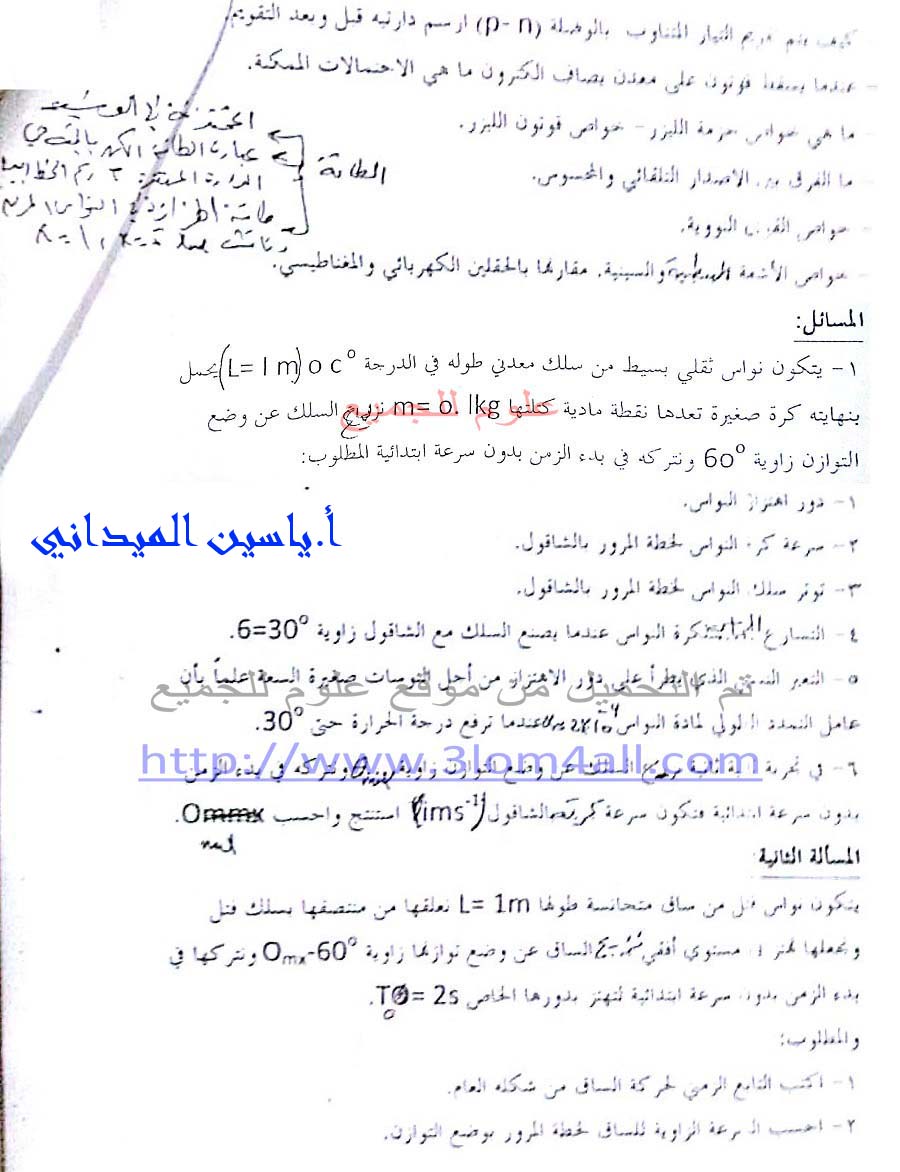 كيف يتم تقويم التيار المتناوب بالوصلة (p-n) ارسم دارتيه قبل وبعد التقويم.
- عندما يسقط فوتون على معدن يصادف الكترون ما هي الاحتمالات الممكنة.
- ما هي خواص حزمة الليزر - خواص فوتون الليزر.
- ما الفرق بين الاصدار التلقائي والمحسوس.
- خواص القوى النووية.
- خواص الأشعة المهبطية والسينية. مقارنتها بالحقلين الكهربائي والمغناطيسي.
الطاقة
عبارة الطاقة
المسائل:
١- يتكون نواس ثقلي بسيط من سلك معدني طوله في الدرجة o c° (L= 1 m) يحمل
بنهايته كرة صغيرة نعدها نقطة مادية كتلتها m= 0. 1kg نزيح السلك عن وضع
علوم للجميع
التوازن زاوية 60° ونتركه في بدء الزمن بدون سرعة ابتدائية المطلوب:
١- دور اهتزاز النواس.
أ.ياسين الميداني
٢- سرعة كرة النواس لحظة المرور بالشاقول.
٣- توتر سلك النواس لحظة المرور بالشاقول.
٤- التسارع لكرة النواس عندما يصنع السلك مع الشاقول زاوية 6=30°.
٥- التغير النسبي الذي يطرأ على دور الاهتزاز من أجل النوسات صغيرة السعة علماً بأن
تم التحميل من موقع علوم للجميع
عامل التمدد الطولي لمادة النواس عندما ترفع درجة الحرارة حتى 30°.
http://www.3lom4all.com
٦- في تجربة ثانية نزيح السلك عن وضع التوازن زاوية ونتركه في بدء الزمن
بدون سرعة ابتدائية فتكون سرعة بالشاقول استنتج واحسب
المسألة الثانية:
يتكون نواس فتل من ساق متجانسة طولها L= 1m نعلقها من منتصفها بسلك فتل
ونجعلها تهتز في مستوي أفقي نزيح الساق عن وضع توازنها زاوية Omx-60° ونتركها في
بدء الزمن بدون سرعة ابتدائية لتهتز بدورها الخاص = 2s.
والمطلوب:
١- اكتب التابع الزمني لحركة الساق من شكله العام.
٢- احسب السرعة الزاوية للساق لحظة المرور بوضع التوازن.